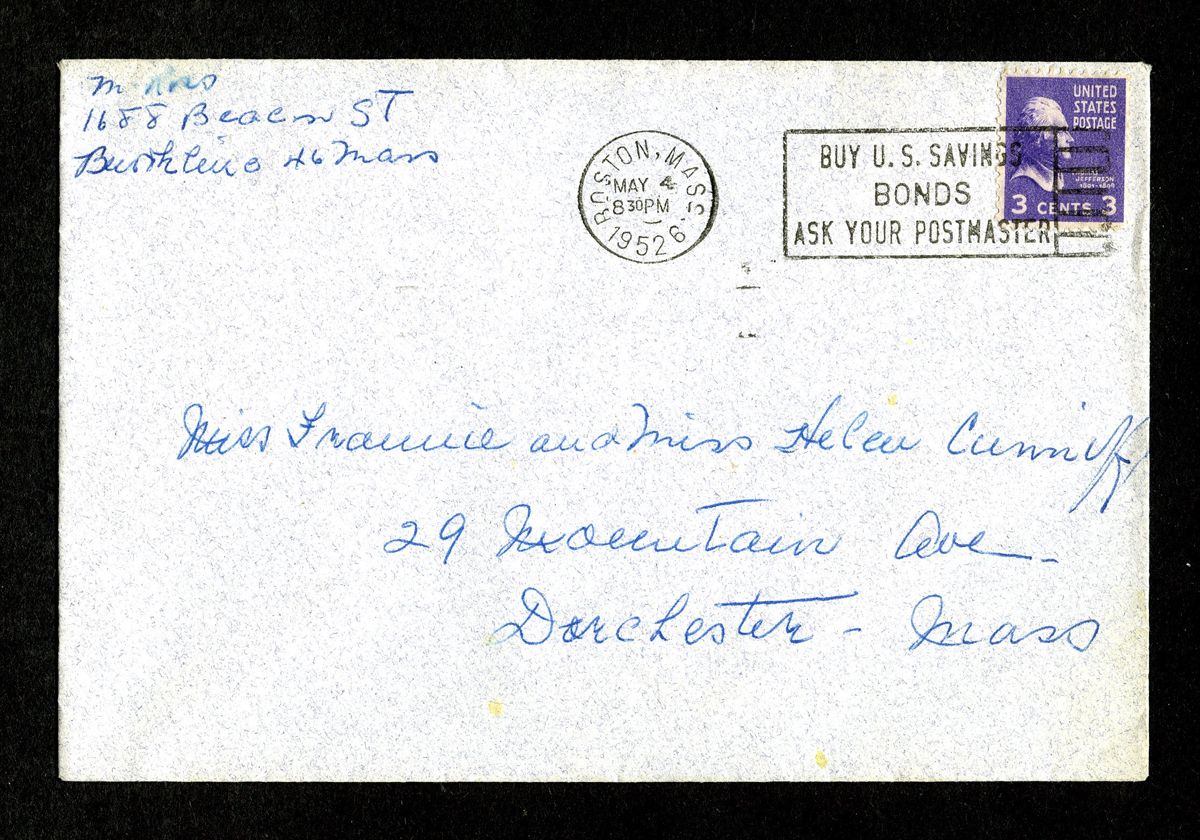 M Ross
1688 Beacon ST
Brookline 46 Mass
BOSTON, MASS.
MAY 4
8 30 PM
1952 6
BUY U.S. SAVINGS
BONDS
ASK YOUR POSTMASTER
UNITED
STATES
POSTAGE
JEFFERSON
1801-1809
3 CENTS 3
Miss Frannie and Miss Helen Cunniff
29 Mountain Ave
Dorchester - Mass